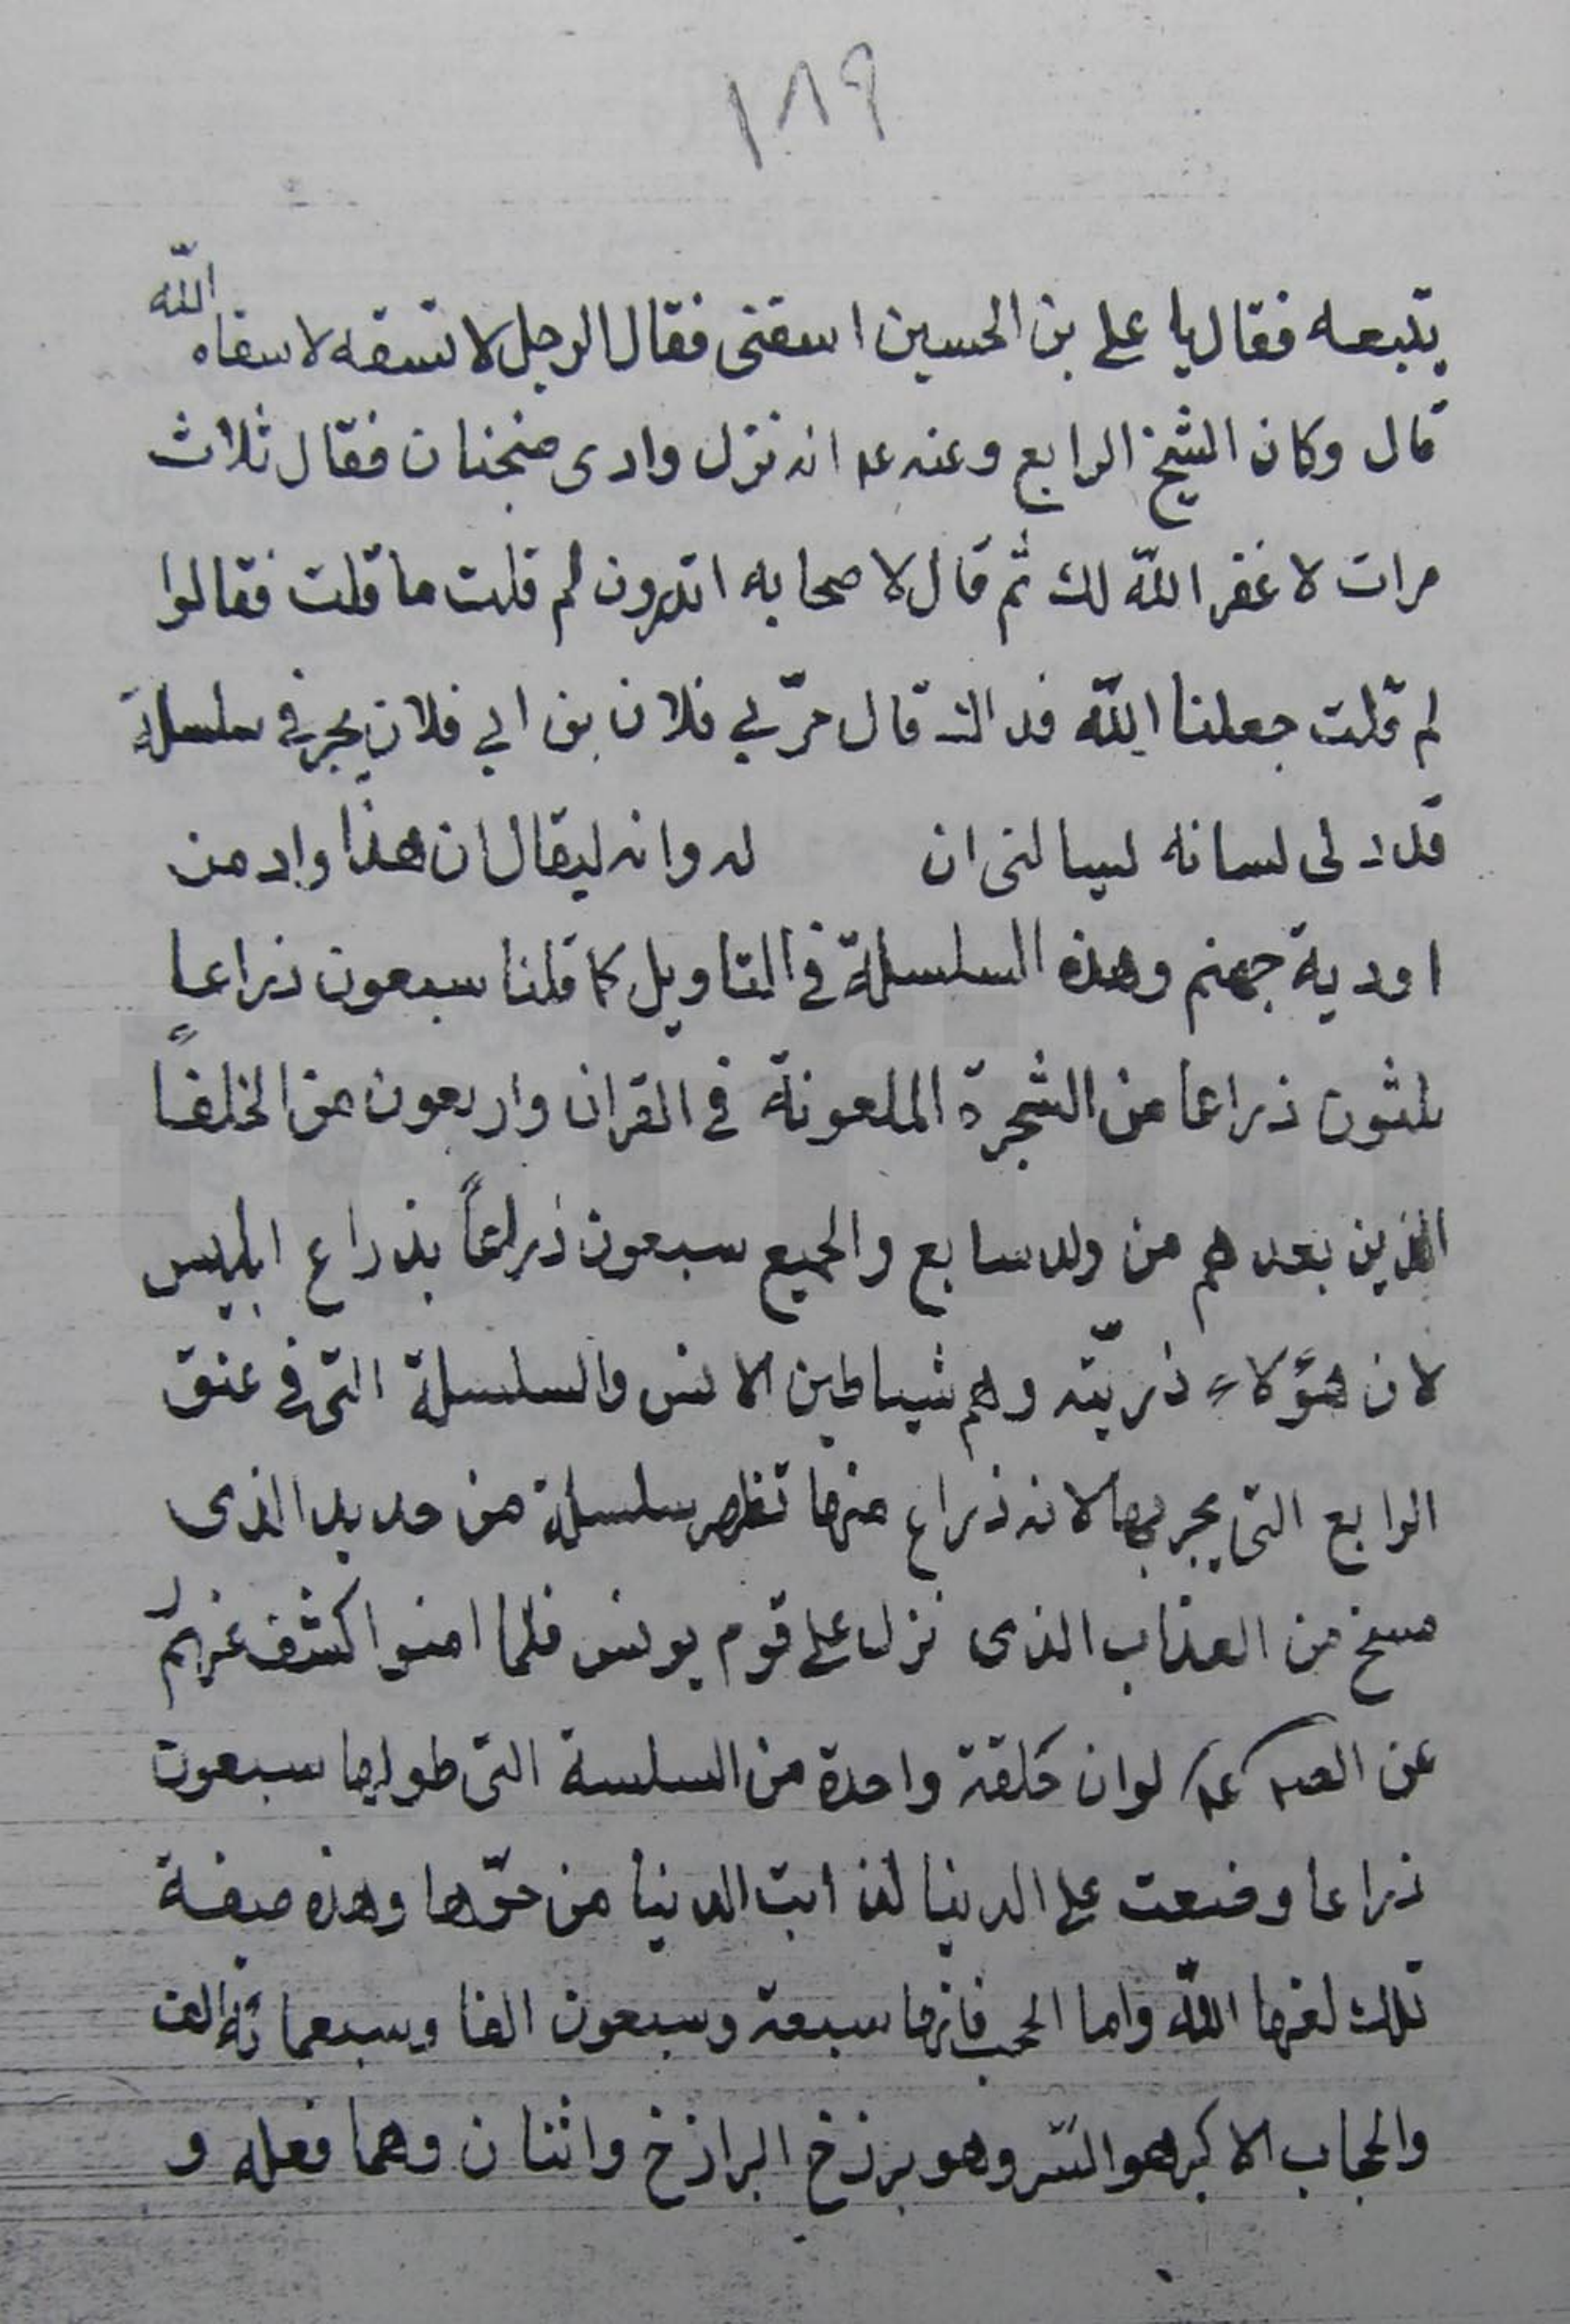 ١٨٩
يتبعه فقال يا علي بن الحسين اسقنى فقال الرجل لا تسقه لا سقاه الله
قال وكان الشيخ الرابع وعنه عه انه نزل وادى ضجنان فقال ثلاث
مرات لا غفر الله لك ثم قال لاصحابه اتدرون لم قلت ما قلت فقالوا
لم قلت جعلنا الله فداك قال مرّ بي فلان بن ابي فلان يجر في سلسلة
قد دلى لسانه ليسالنى ان له وانه ليقال ان هذا واد من
اودية جهنم وهذه السلسلة في التاويل كما قلنا سبعون ذراعا
ثلثون ذراعا من الشجرة الملعونة في القران واربعون من الخلفاً
الذين بعدهم من ولد سابع والجميع سبعون ذراعاً بذراع ابليس
لان هؤلاء ذريّته وهم شياطين الانس والسلسلة التى في عنق
الرابع التى يجر بها لانه ذراع منها تظهر سلسلة من حديد الذى
مسخ من العذاب الذى نزل على قوم يونس فلما امنوا كشف عنهم
عن الصه عه لو ان حلقة واحدة من السلسة التى طولها سبعون
ذراعا وضعت على الدنيا لذابت الدنيا من حرّها وهذه صفة
تلك لعنها الله واما الحجب فانها سبعة وسبعون الفا وسبعمائة الف
والحجاب الاكبر هو السّر وهو برزخ البرازخ واثنان وهما فعله و